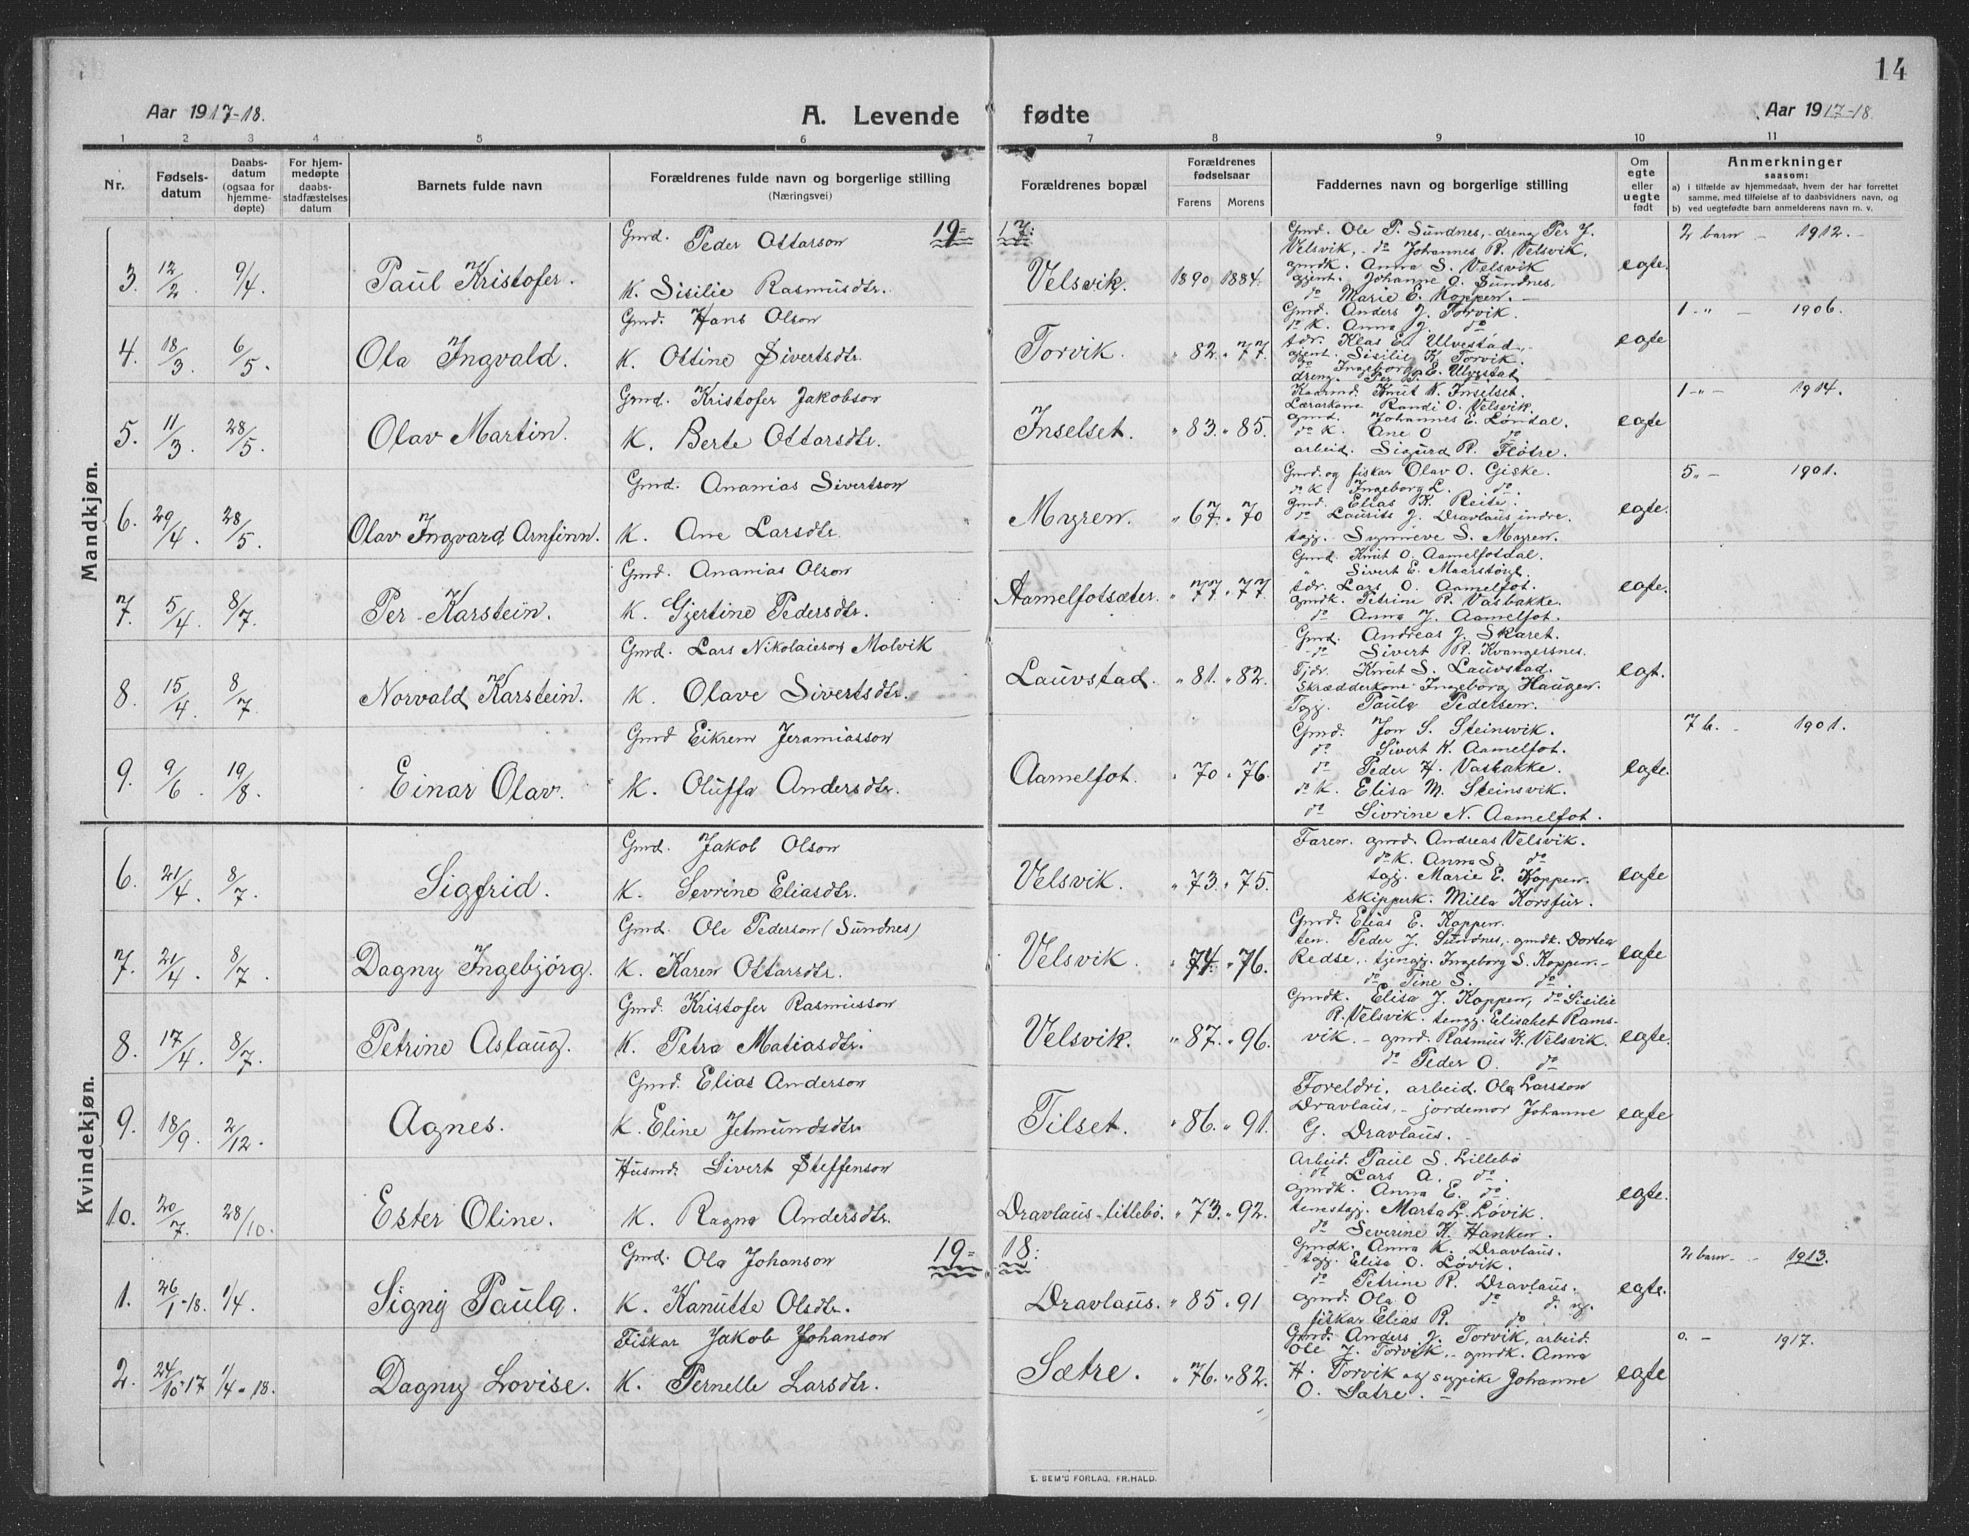 14
Aar 1917-18.
A. Levende fødte
Aar 1917-18
1 2 3 4 5 6 7 8 9 10 11
Nr.
Fødsels-
datum
Daabs-
datum
(ogsaa for
hjemme-
døpte)
For hjem-
medøpte
daabs-
stadfæstelses
datum
Barnets fulde navn
Forældrenes fulde navn og borgerlige stilling
(Næringsvei)
Forældrenes bopæl
Forældrenes
fødselsaar
Farens
Morens
Faddernes navn og borgerlige stilling
Om
egte
eller
uegte
født
Anmerkninger
saasom:
a) i tilfælde av hjemmedaab, hvem der har forrettet
samme, med tilføielse af to daabsvidners navn, og
b) ved uegtefødte barn anmelderens navn m. v.
Mandkjøn.
19=17:
3. 12/2 9/4. Paul Kristofer.
Gmd. Peder Ottarson
K. Sisilie Rasmusdtr.
Velsvik. 1890 1884.
Gmd. Ole P. Sundnes, dreng Per J.
Velsvik, do Johannes R. Velsvik,
gmdk. Anna S. Velsvik
gjent. Johanne O. Sundnes.
do Marie E. Koppen. –
egte.
2 barn – 1912. –
4. 18/3 6/5. Ola Ingvald.
Gmd. Hans Olson
K. Ottine Sivertsdtr.
Torvik. " 82. " 77.
Gmd. Anders J. Torvik.
do K. Anna J. do
tdr. Klas E. Ulvestad,
gjent. Sisilie K. Torvik.
do Ingeborg E. Ulvestad
dreng. Per
egte
1 „ – 1906.
5. 11/3 28/5. Olav Martin.
Gmd. Kristofer Jakobson
K. Berte Ottarsdtr.
Inselset. " 83. " 85.
Kaarmd. Knut K. Inselset.
Lærarkone Randi O. Velsvik.
gmd. Johannes E. Løndal.
do K. Ane O do
arbeid. Sigurd R. Fløtre.
egte
1 -„- 1914.
6. 20/4. 28/5. Olav Ingvard Arnfinn.
Gmd. Ananias Sivertson
K. Ane Larsdtr.
Myren. " 67. " 70
Gmd. og fiskar Olav O. Giske.
do K. Ingeborg L. do.
Gmd. Elias K. Reite.
do Laurits J. Dravlaus indre.
tagj. Synneve S. Myren.
egte.
5 „ – 1901.
7. 5/4. 8/7. Per Karstein.
Gmd. Ananias Olson
K. Gjertine Pedersdtr.
Aamelfotsæter. " 77. " 77.
Gmd. Knut O. Aamelfotdal.
" Sivert E. Maarstøyl.
tdr. Lars O. Aamelfot.
gmdk. Petrine R. Vasbakke.
do Anna J. Aamelfot.
egte.
8. 15/4. 8/7. Norvald Karstein.
Gmd. Lars Nikolaison Molvik
K. Olave Sivertsdtr.
Lauvstad. " 81. " 82.
Gmd. Andreas J. Skaret.
do Sivert R. Kvangersnes.
Tjdr. Knut S. Lauvstad.
Skrædderkone Ingeborg Haugen.
Tagj. Paula Pedersen.
egt.
9. 9/6. 19/8. Einar Olav.
Gmd Eikrem Jeramiasson
K. Oluffa Andersdtr.
Aamelfot. " 70 " 76.
Gmd. Jon S. Steinsvik.
do Sivert K. Aamelfot.
do Peder H. Vasbakke.
do K. Elisa M. Steinsvik.
do Sivrine N. Aamelfot.
egte.
7 b. – 1901.
Kvindekjøn.
6. 21/4. 8/7. Sigfrid.
Gmd. Jakob Olson
K. Sevrine Eliasdtr.
Velsvik. " 73. " 75.
Faren. gmd. Andreas Velsvik.
do K. Anna S. do
tagj. Marie E. Koppen.
skipperk. Milla Korsfur.
egte
7. 21/4. 8/7. Dagny Ingebjørg.
Gmd. Ole Pederson (Sundnes)
K. Karen Ottarsdtr.
Velsvik " 74. " 76.
Gmd. Elias E. Koppen.
ten. Peder J. Sundnes, gmdk. Dortea
Redse, tjengj. Ingeborg S. Koppen. –
do Tine S. do.
egte
8. 17/4. 8/7. Petrine Aslaug.
Gmd. Kristofer Rasmusson
K. Petra Matiasdtr.
Velsvik. " 87. " 96.
Gmdk. Elisa J. Koppen, do Sisilie
R. Velsvik. tengj. Elisabet Rams-
vik. – gmd. Rasmus K. Velsvik.
do Peder O. do
egte.
9. 18/9. 2/12. Agnes.
Gmd. Elias Anderson
K. Eline Jetmundsdtr.
Tilset. " 86. " 91.
Foreldri, arbeid. Ola Larsson
Dravlaus, – jordemor Johanne
G. Dravlaus.
egte
10. 20/7. 28/10. Ester Oline.
Husmd. Sivert Steffenson
K. Ragna Andersdtr.
Dravlaus-litlebø. " 73. " 92.
Arbeid. Paul S. Lillebø
do Lars A. do.
gmdk. Anna E. do.
tenestgj. Marta L. Løvik.
do Severine K. Hanken.
egte.
19=18:
1. 26/1-18. 1/4. Signy Paula.
Gmd. Ola Johanson
K. Kanutte Olsdtr.
Dravlaus. " 85 " 91
Gmdk. Anna K. Dravlaus.
tagj. Elisa O. Løvik.
do Petrine R. Dravlaus.
gmd. Ola O do d. og.
fiskar Elias R. do.
egte.
2 barn – 1913.
2. 24/10-17 1/4-18. Dagny Lovise.
Fiskar Jakob Johanson
K. Pernelle Larsdtr.
Sætre. " 76. " 82.
Gmd. Anders J. Torvik, arbeid.
Ole J. Torvik, – gmdk. Anna
H. Torvik og sypike Johanne
O. Satre. –
egte
0. – 1917.
E. SEM'S FORLAG, FR.HALD.